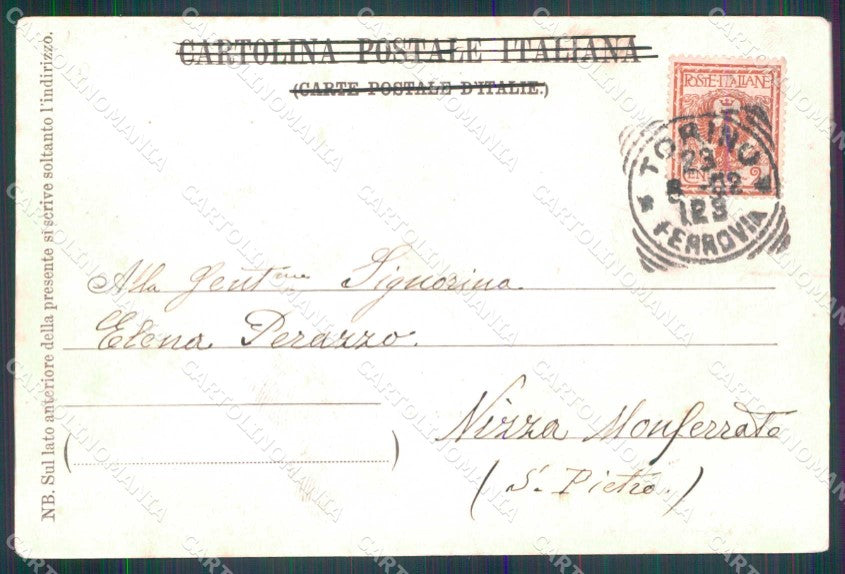 CARTOLINA POSTALE ITALIANA
(CARTE POSTALE D'ITALIE.)
POSTE ITALIANE
2
TORINO
23
8 - 02
12 S
FERROVIA
Alla Gent.me Signorina
Elena Perazzo.
Nizza Monferrato
(S. Pietro.)
NB. Sul lato anteriore della presente si scrive soltanto l'indirizzo.
CARTOLINOMANIA